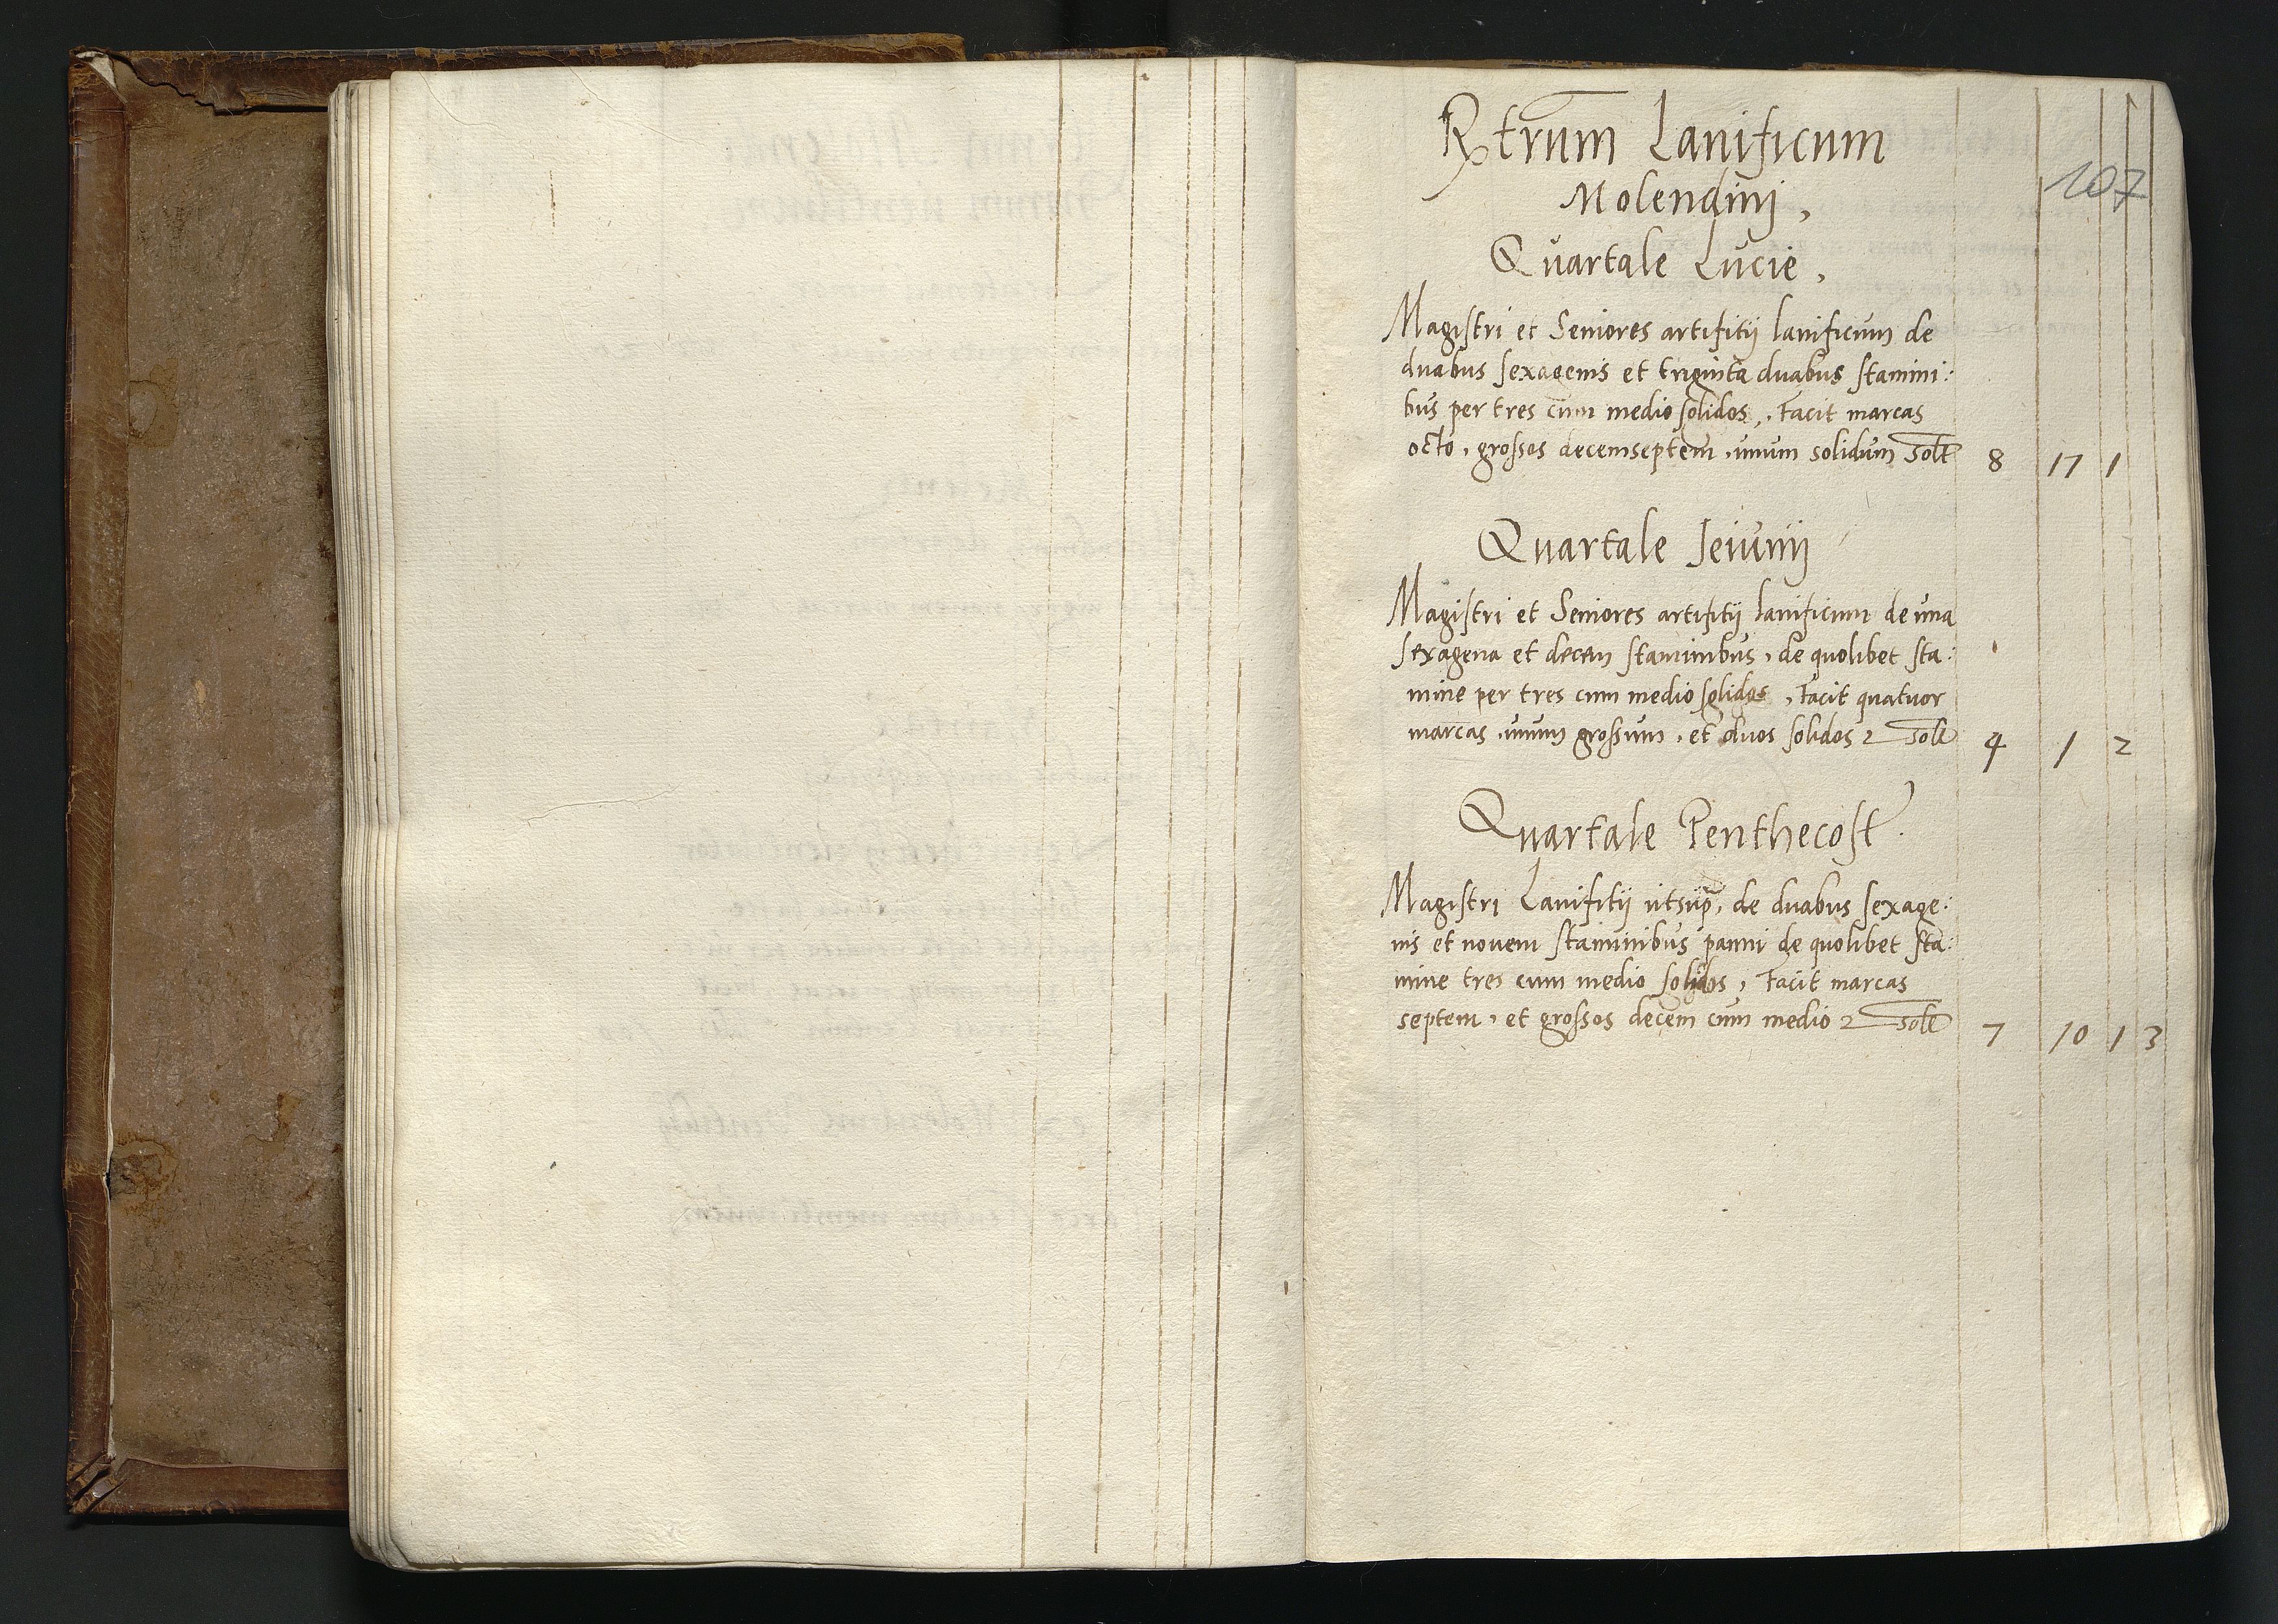 Rtrum Lanificum
107
Molendinj,
Quartale Lucie,
Magistri et Seniores artifitij lanificum de
duabus sexagenis et triginta duabus stamini:
bus per tres cum medio solidos, Facit marcas
octo, grossos decemseptem, unum solidum solt 8 17 1
Quartale Jeiunij
Magistri et Seniores artifitij lanificum de una
sexagena et decem staminibus, de quolibet sta:
mine per tres cum medio solidos, Facit quatuor
marcas, unum grossum, et duos solidos solt 4 1 2
Quartale Penthecost
Magistri Lanifitij utsup, de duabus sexage:
nis et novem staminibus panni de quolibet sta:
mine tres cum medio solidos, Facit marcas
septem, et grossos decem cum medio solt 7 10 1 3